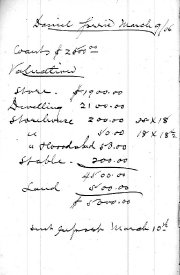 Daniel March 9/06
Wants $2500.00
Valuation
Store. $1900.00
Dwelling 2100.00
Storehouse 200.00 20 x 18
" 50.00 18 x 18½
" 50.00
Stable. 200.00
4500.00
Land 500.00
$5000.00
March 10th